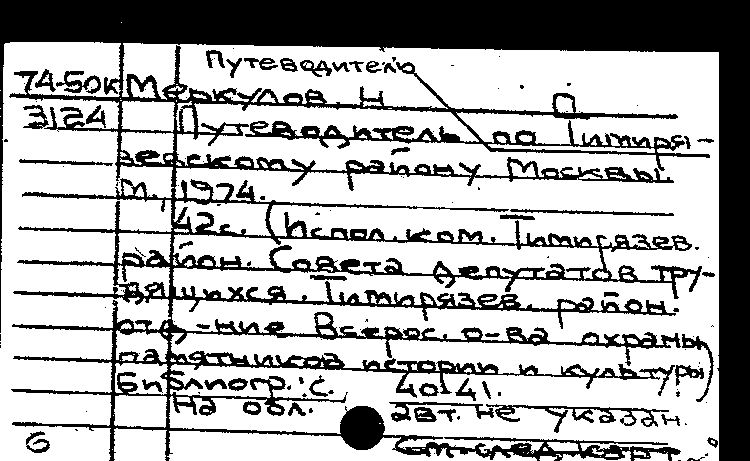 Путеводителю
74-50к Меркулов, Н П
3124 Путеводитель по Тимиря-
зевскому району Москвы.
М., 1974.
42с. (Испол. ком. Тимирязев.
район. Совета депутатов тру-
дящихся. Тимирязев. район.
отд-ние Всерос. о-ва охраны
памятников истории и культуры)
Библиогр.: с. 40-41.
На обл. авт. не указан.
6 См. след. карт.